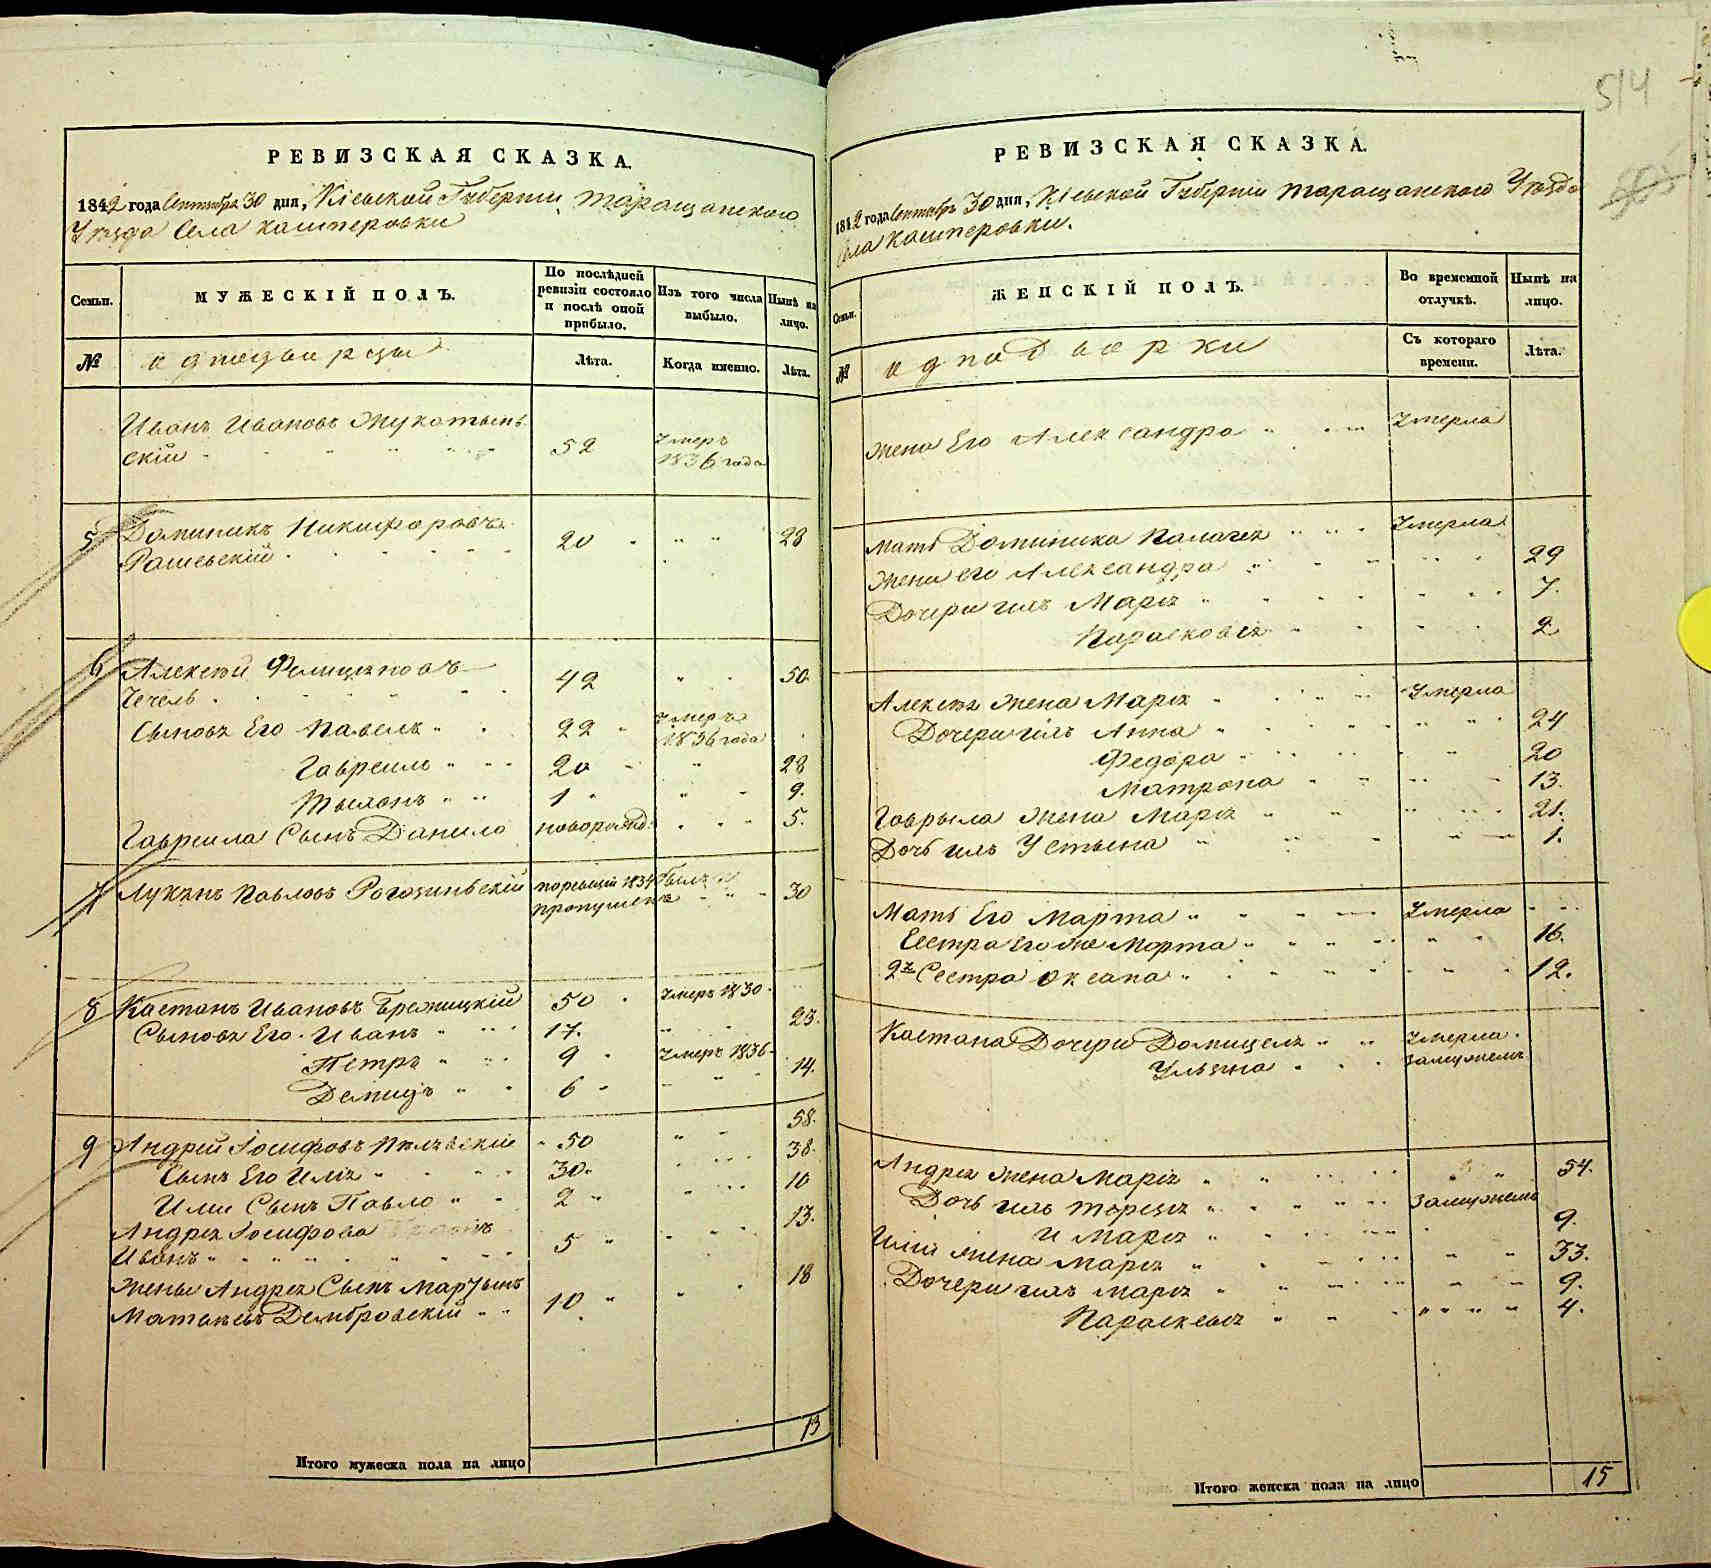 514
РЕВИЗСКАЯ СКАЗКА.
1842 года Сентября 30 дня, Кіевской Губерніи Таращанского
Уезда Села Кашперовки
Семьи.
МУЖЕСКІЙ ПОЛЪ.
По послѣдней ревизіи состояло и послѣ оной прибыло.
Изъ того числа выбыло.
Нынѣ на лицо.
№
однодворцы
Лѣта.
Когда именно.
Лѣта.
Иванъ Ивановъ Жукотынь
скій 52 Умеръ 1836 года
5 Доминикъ Никифоровъ
Рашевскій 20 28
6 Алексѣй Фелиціановъ
Чечель 42 50.
Сыновя Его Павелъ 22 Умеръ 1836 года
Гавреилъ 20 28
Тымонъ 1 9.
Гавреила Сынъ Данило новорожд. 5.
7 Лукянъ Павловъ Рогозиньскій поревизіи 1834 былъ пропущенъ 30
8 Каетанъ Ивановъ Брежицкій 50 Умеръ 1830
Сыновя Его Иванъ 17. 25.
Петръ 9 Умеръ 1836
Демидъ 6 14.
9 Андрей Іосифовъ 50 58.
Сынъ Его Илія 30. 38.
Илии Сынъ Павло 2 10
Андрея Іосифова
Иванъ 5 13.
Жены Андрея Сынъ Марцынъ
Матвѣевъ Дембровскій 10 18
13
Итого мужеска пола на лицо
РЕВИЗСКАЯ СКАЗКА.
1842 года Сентябрь 30 дня, Кіевской Губерніи Таращанского Уезда
Села Кашперовки.
Семьи.
ЖЕНСКІЙ ПОЛЪ.
Во временной отлучкѣ.
Нынѣ на лицо.
№
однодворки
Съ котораго времени.
Лѣта.
Жена Его Александра Умерла
Мать Доминика Палагея Умерла
Жена его Александра 29
Дочери ихъ Марія 7.
Парасковія 2
Алексѣя Жена Марія Умерла
Дочери ихъ Анна 24
Федора 20
Матрона 13.
Гаврыла Жена Марія 21.
Дочь ихъ Устына 1.
Мать Его Марта Умерла
Сестра Его же Марта 16.
2я Сестра Оксана 12.
Каетана Дочери Домицеля Умерла
Ульяна Замужемъ
Андрея Жена Марія 54.
Дочь ихъ Терезія Замужемъ
И Марія 9.
Илии Жена Марія 33.
Дочери ихъ Марія 9.
Параскевія 4.
15
Итого женска пола на лицо